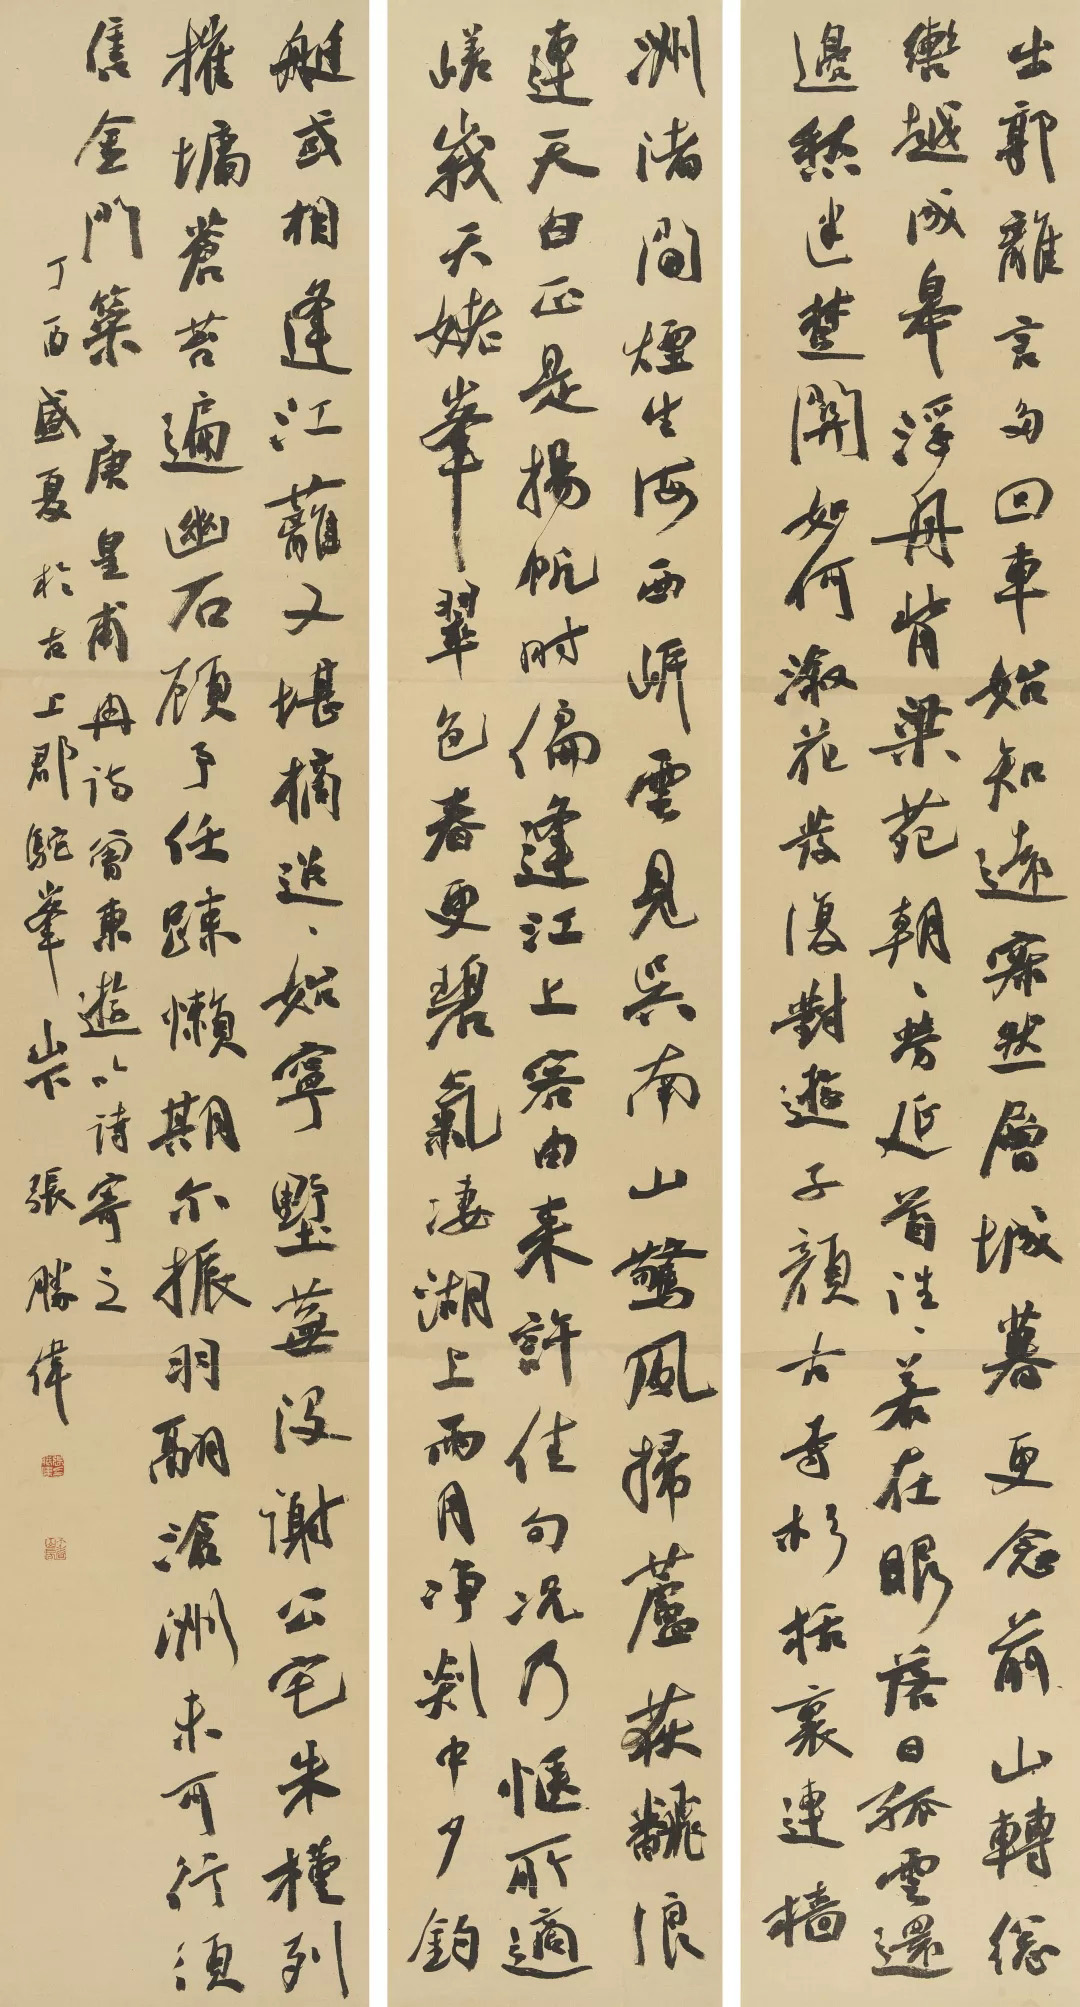 出郭離言多回車始知遠寂然層城暮更念前山轉總
轡越成皋浮舟背梁苑朝、勞延首往、若在眼落日孤雲還
邊愁迷楚關如何淥花發復對遊子顏古寺杉栝裏連檣
洲渚間煙生海西岍雲見吳南山驚風掃蘆荻飜浪
連天白正是揚帆時偏逢江上客由來許佳句況乃愜所適
嵯峩天姥峯翠色春更碧氣淒湖上雨月淨剡中夕釣
艇或相逢江蘺又堪摘迢、始寧墅蕪沒謝公宅朱槿列
摧墉蒼苔遍幽石顧予任疎懶期尔振羽翮滄洲未可行須
售金門策 唐皇甫冉詩曾東遊以詩寄之
丁酉盛夏於古上郡駝峯山下張勝偉